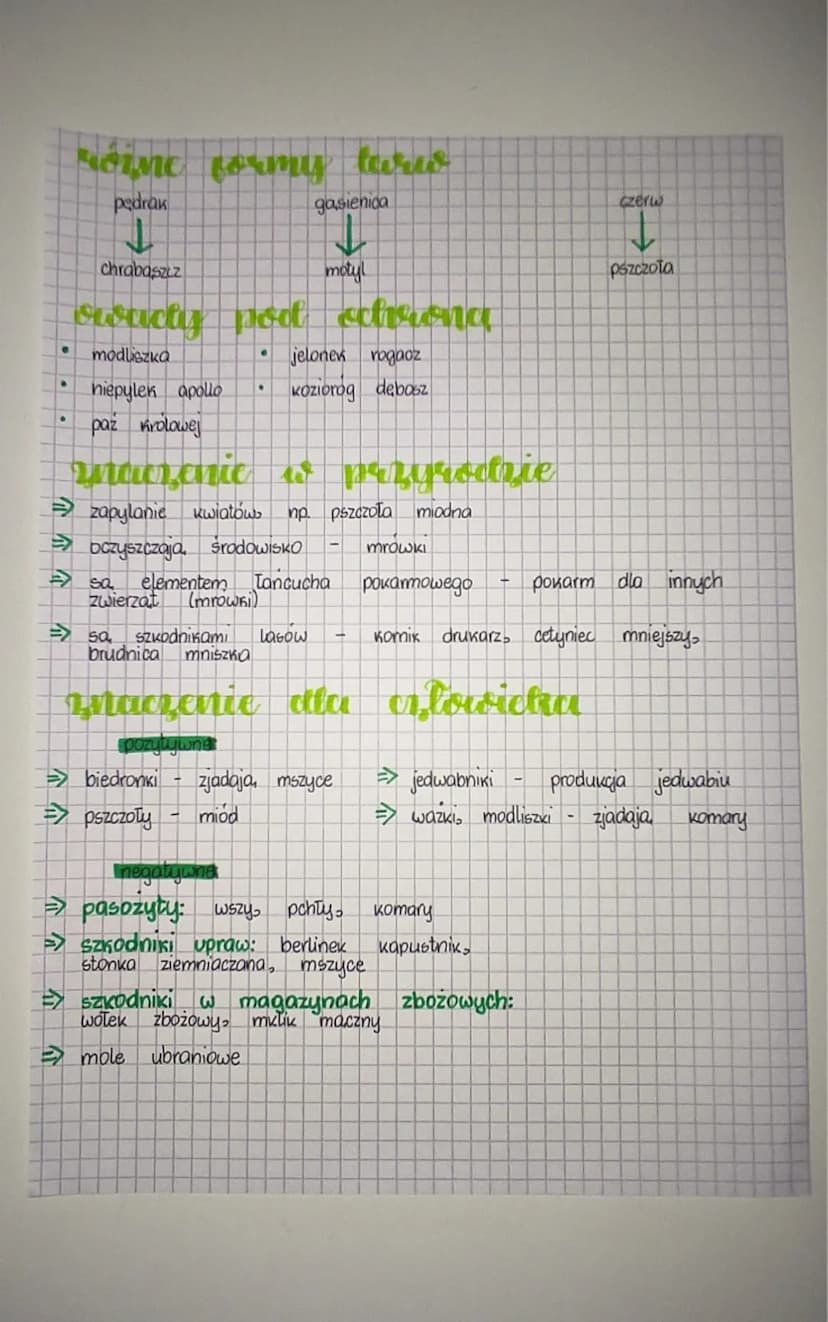 różne formy larw
pędrak gąsienica czerw
chrabąszcz motyl pszczoła
owady pod ochroną
• modliszka • jelonek rogacz
• niepylek apollo • kozioróg dębosz
• paź królowej
znaczenie w przyrodzie
⇒ zapylanie kwiatów np. pszczoła miodna
⇒ oczyszczają środowisko - mrówki
⇒ są elementem łańcucha pokarmowego - pokarm dla innych
zwierząt (mrówki)
⇒ są szkodnikami lasów - kornik drukarz, cetyniec mniejszy,
brudnica mniszka
znaczenie dla człowieka
pozytywne
⇒ biedronki - zjadają mszyce ⇒ jedwabniki - produkcja jedwabiu
⇒ pszczoły - miód ⇒ ważki, modliszki - zjadają komary
negatywne
⇒ pasożyty: wszy, pchły, komary
⇒ szkodniki upraw: berlinek kapustnik,
stonka ziemniaczana, mszyce
⇒ szkodniki w magazynach zbożowych:
wołek zbożowy, mklik mączny
⇒ mole ubraniowe